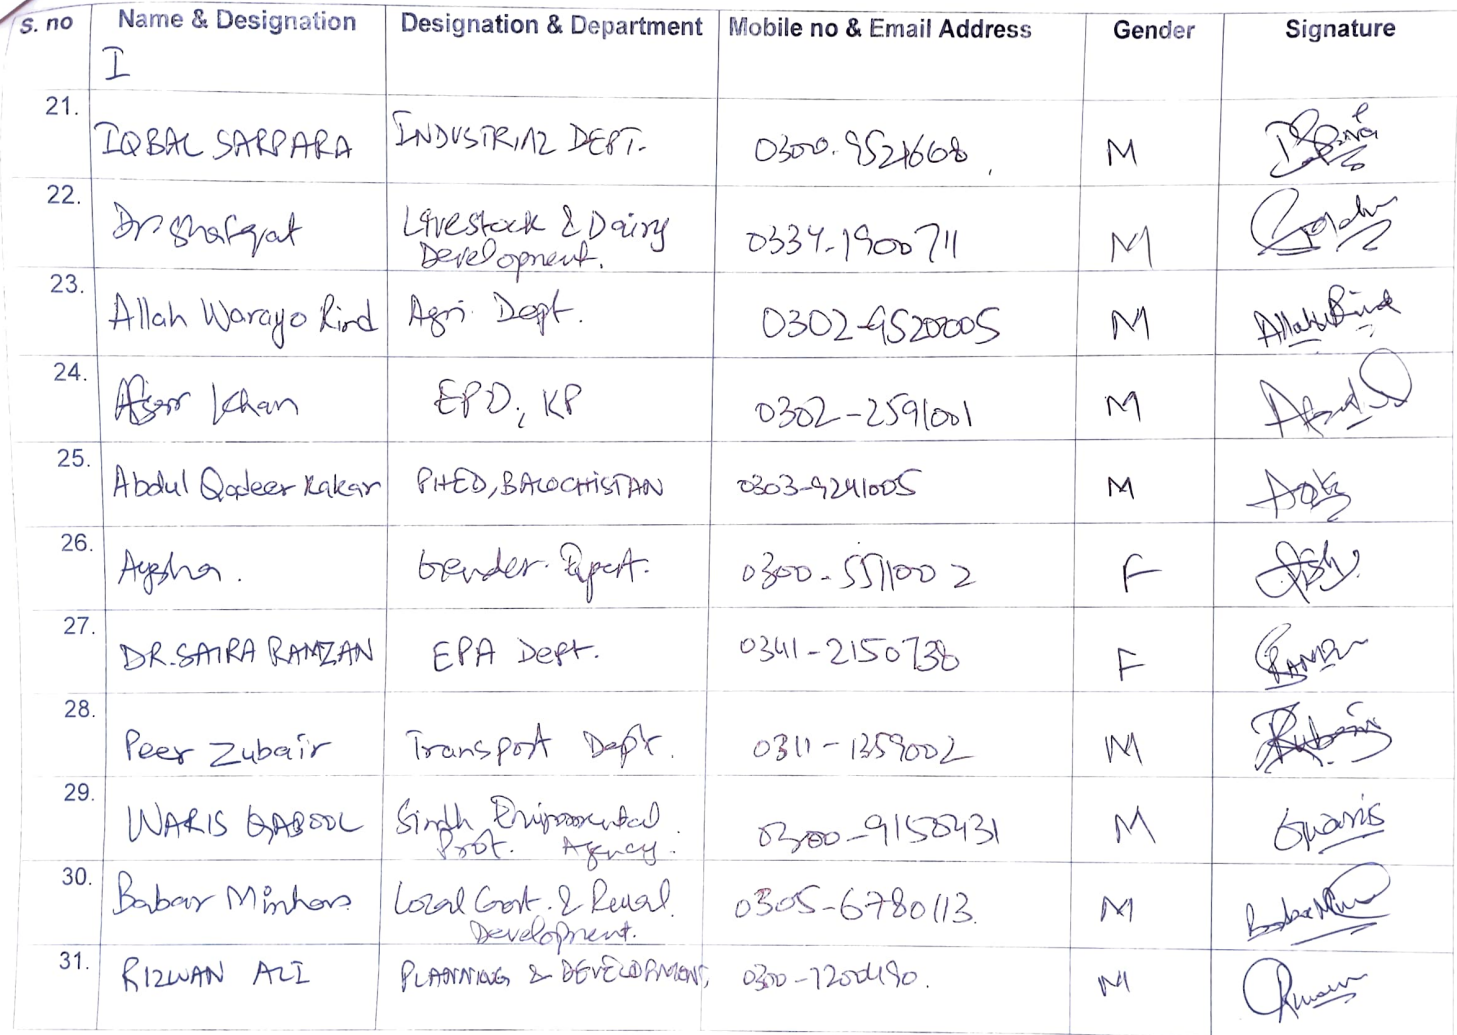 S. no Name & Designation Designation & Department Mobile no & Email Address Gender Signature
I
21. IQBAL SARPARA INDUSTRIAL DEPT. 0300-9521668 M
22. Dr Shafqat Livestock & Dairy Development. 0334-1900711 M
23. Allah Warayo Rind Agri Dept. 0302-9520005 M Allah Rind
24. Afsar Khan EPD, KP 0302-2591001 M
25. Abdul Qadeer Kakar PHED, BALOCHISTAN 0303-9241005 M
26. Aysha. Gender Expert. 0300-5511002 F
27. DR. SAIRA RAMZAN EPA Dept. 0341-2150738 F
28. Peer Zubair Transport Dept. 0311-1359002 M
29. WARIS GABOOL Sindh Environmental Prot. Agency. 0300-9150431 M
30. Babar Minhas Local Govt. & Rural Development. 0305-6780113. M
31. RIZWAN ALI PLANNING & DEVELOPMENT, 0300-7200490. M